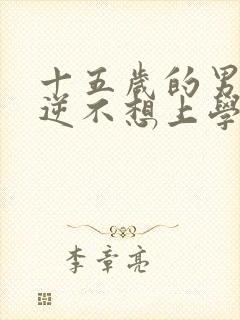 十五歲的男
逆不想上學
李章亮